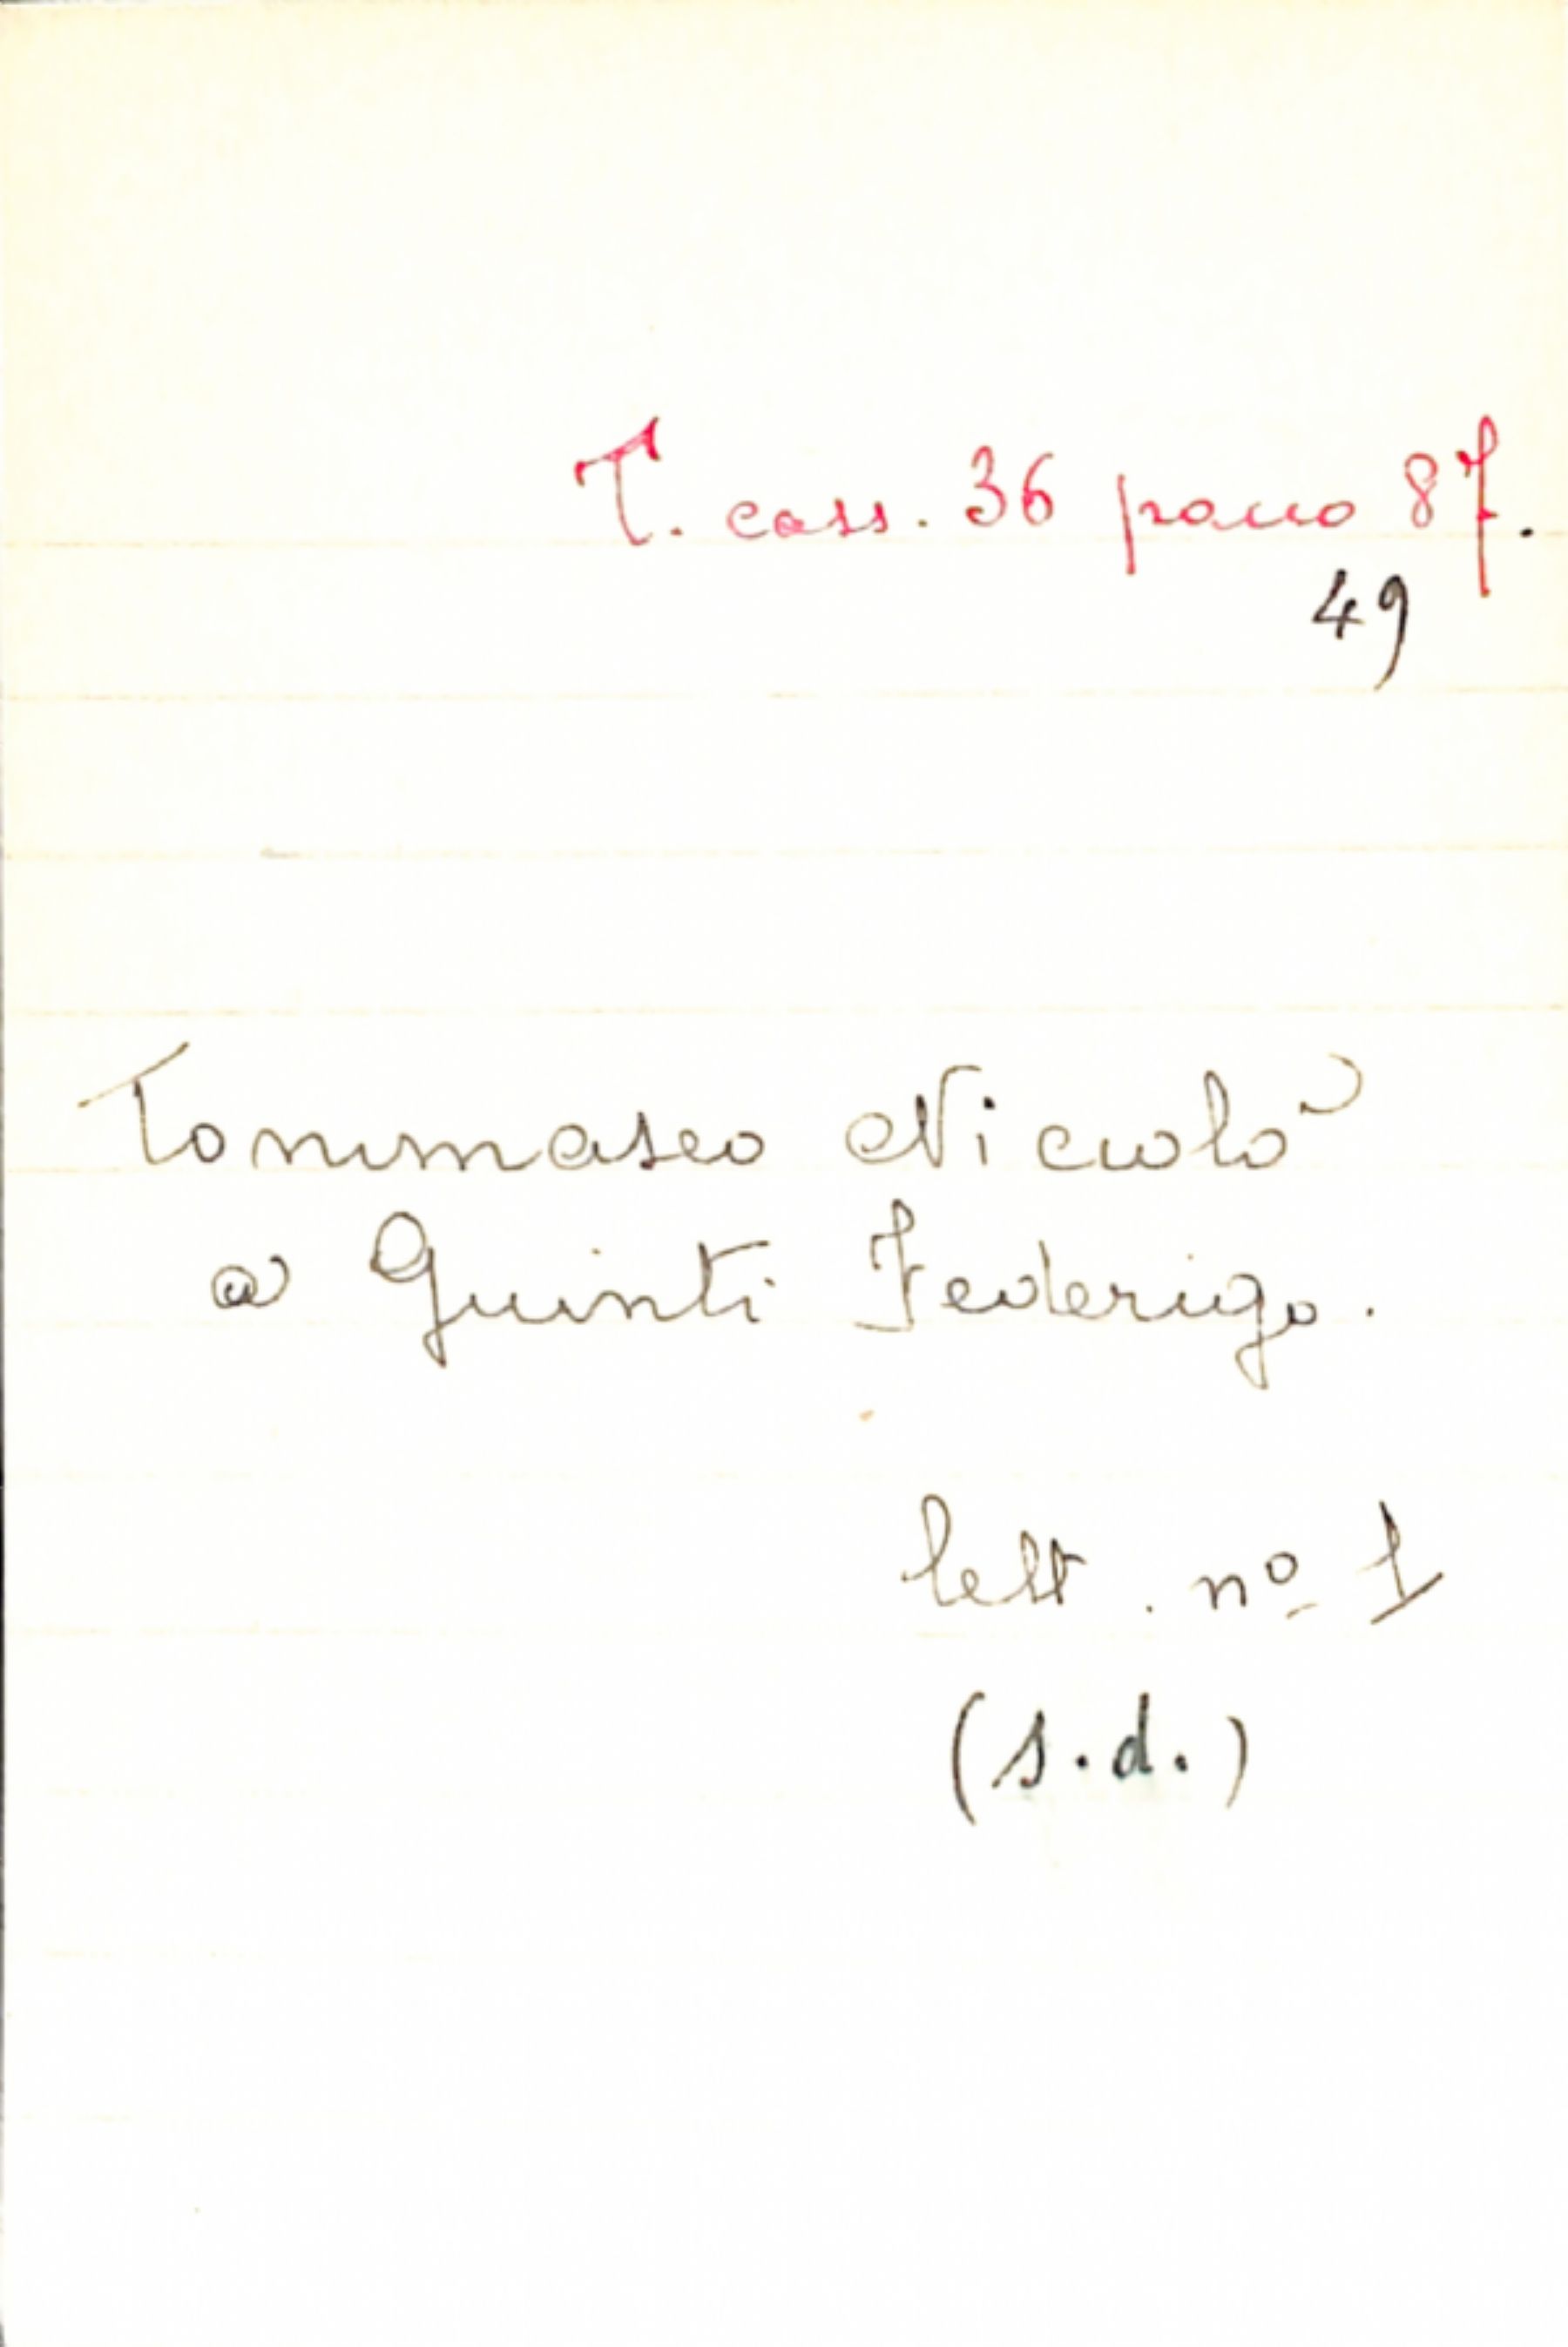 T. cass. 36 pacco 87.
49
Tommaseo Niccolò
a Guinti Federigo.
lett. nº 1
(s.d.)